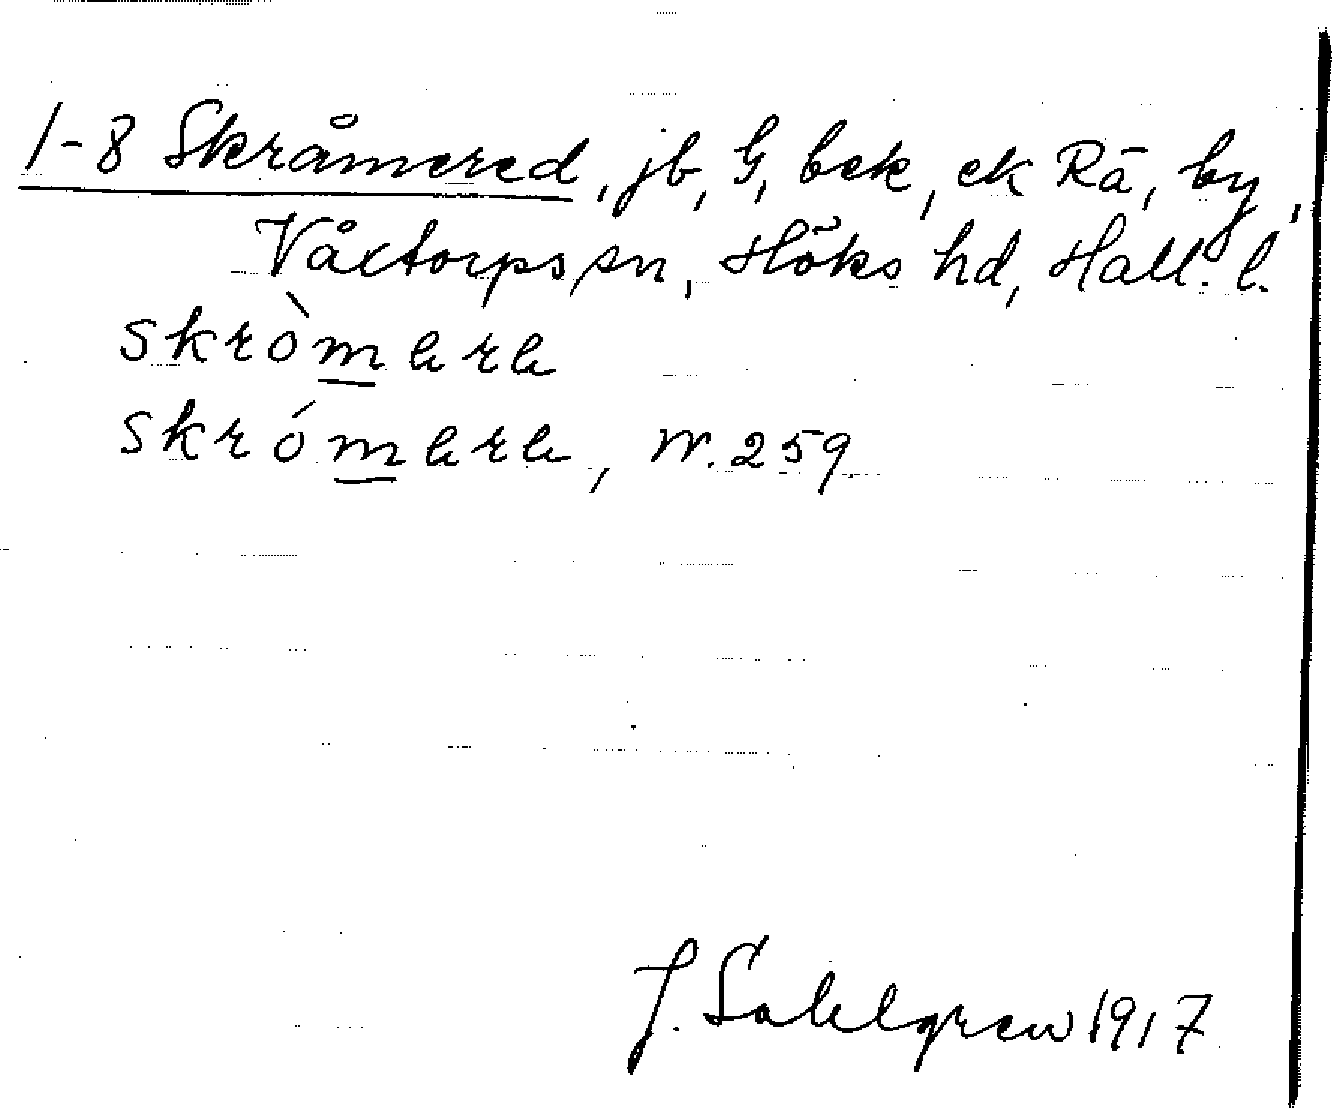 1-8 Skråmered, jb, G, bek, ek Rä, by,
Våxtorps sn, Höks hd, Hall. l.
skròmara
skrómara, W. 259
J. Sahlgren 1917